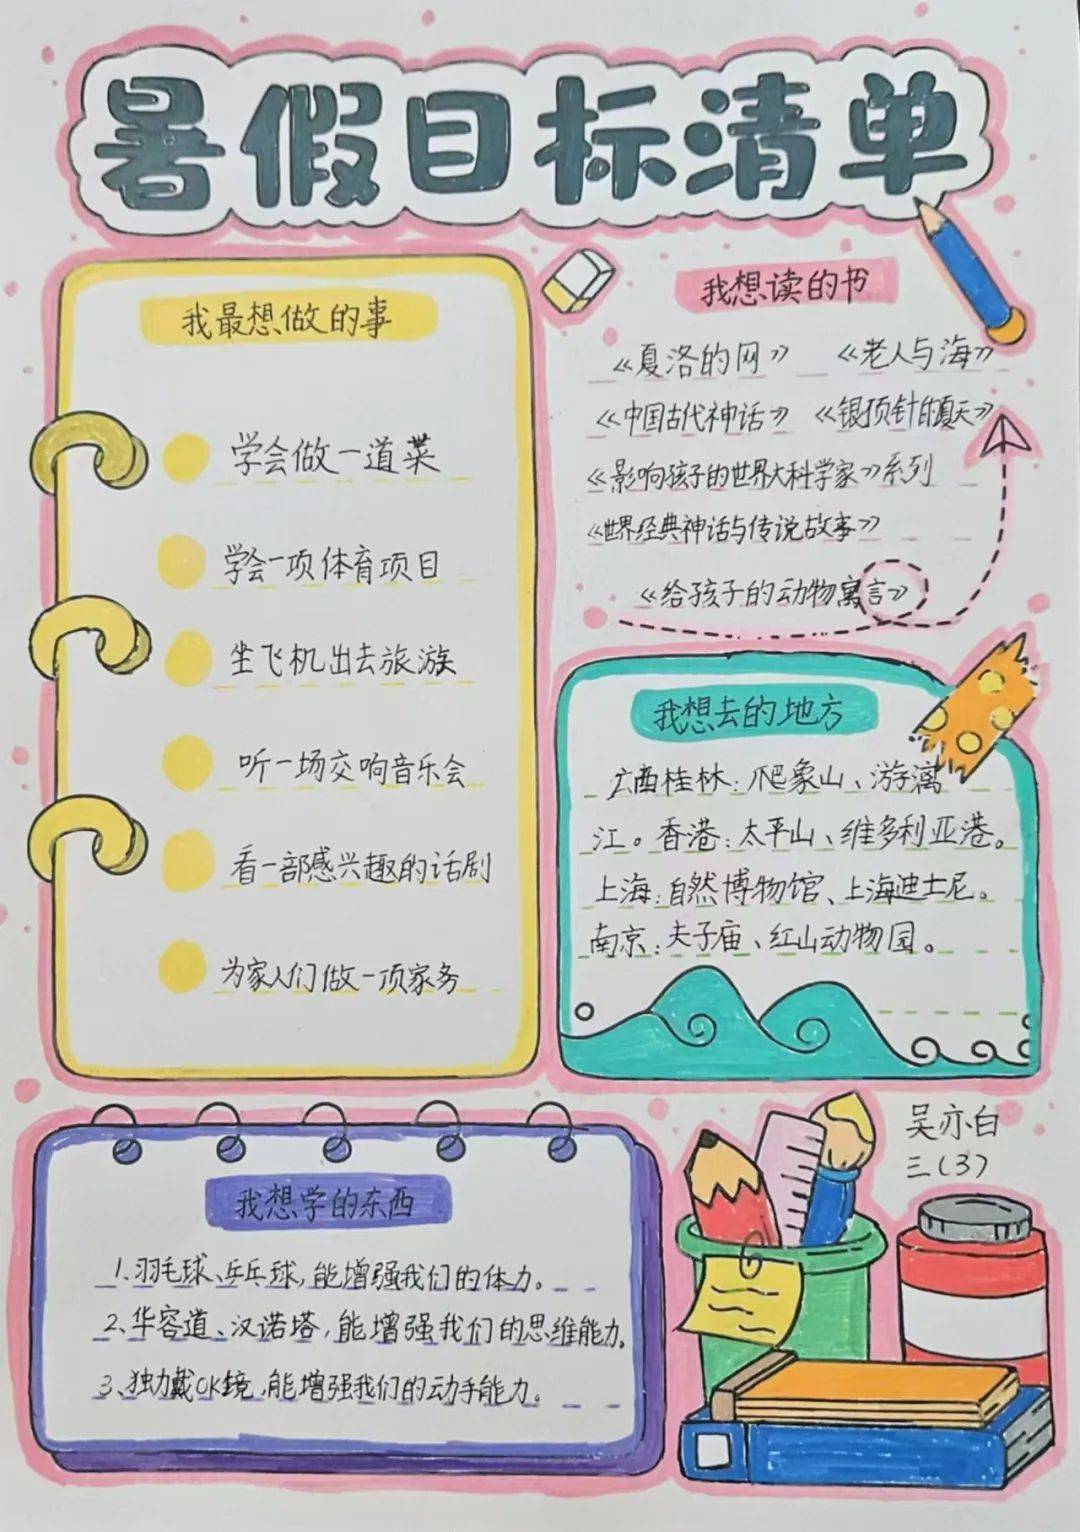 暑假目标清单
我最想做的事
学会做一道菜
学会一项体育项目
坐飞机出去旅游
听一场交响音乐会
看一部感兴趣的话剧
为家人们做一项家务
我想读的书
《夏洛的网》 《老人与海》
《中国古代神话》 《银顶针的夏天》
《影响孩子的世界大科学家》系列
《世界经典神话与传说故事》
《给孩子的动物寓言》
我想去的地方
广西桂林：爬象山、游漓
江。香港：太平山、维多利亚港。
上海：自然博物馆、上海迪士尼。
南京：夫子庙、红山动物园。
我想学的东西
1.羽毛球、乒乓球，能增强我们的体力。
2、华容道、汉诺塔，能增强我们的思维能力。
3、独力戴OK镜，能增强我们的动手能力。
吴亦白
三（3）